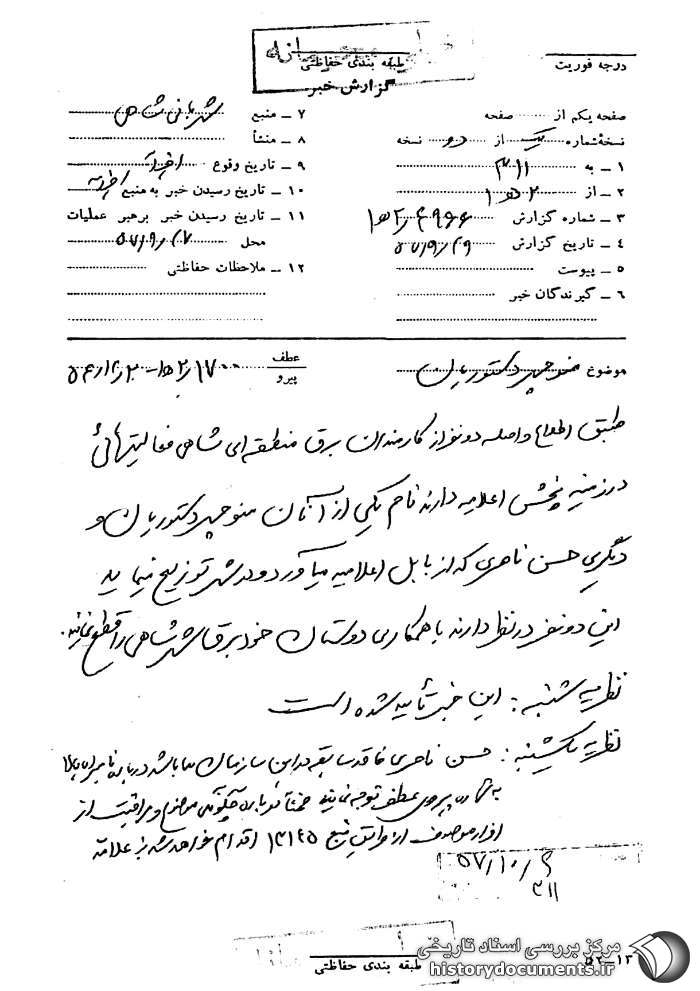 طبقه بندی حفاظتی
گزارش خبر
درجه فوریت
صفحه یکم از صفحه
نسخهٔ شماره یک از دو نسخه
۱ – به ۳۱۱
۲ – از ۲ ه ۱
۳ – شماره گزارش
۴ – تاریخ گزارش
۵ – پیوست
۶ – گیرندگان خبر
۷ – منبع شهربانی شاهی
۸ – منشأ
۹ – تاریخ وقوع اخیراً
۱۰ – تاریخ رسیدن خبر به منبع اخیراً
۱۱ – تاریخ رسیدن خبر برهبر عملیات
محل
۱۲ – ملاحظات حفاظتی
موضوع منوچهر دکتوریان
عطف
پیرو
طبق اطلاع واصله دو نفر از کارمندان برق منطقه ای شاهی فعالیتهائی
در زمینه پخش اعلامیه دارند نام یکی از آنان منوچهر دکتوریان و
دیگری حسن ناصری که از بابل اعلامیه میآورد و در شهر توزیع مینماید
این دو نفر در نظر دارند با همکاری دوستان خود برق شهر شاهی را قطع نمایند.
نظریه شنبه : این خبر تأیید شده است
نظریه یکشنبه : حسن ناصری فاقد سابقه در این سازمان میباشد درباره نامبرده بالا
به پیروی عطف توجه نمایند ضمناً درباره چگونگی موضوع و مراقبت از
افراد موصوف از طریق منبع ۱۳۱۴۵ اقدام خواهد شد
۵۷/۱۰/۶
۳۱۱
طبقه بندی حفاظتی
۵۲–۱۳
مرکز بررسی اسناد تاریخی
historydocuments.ir